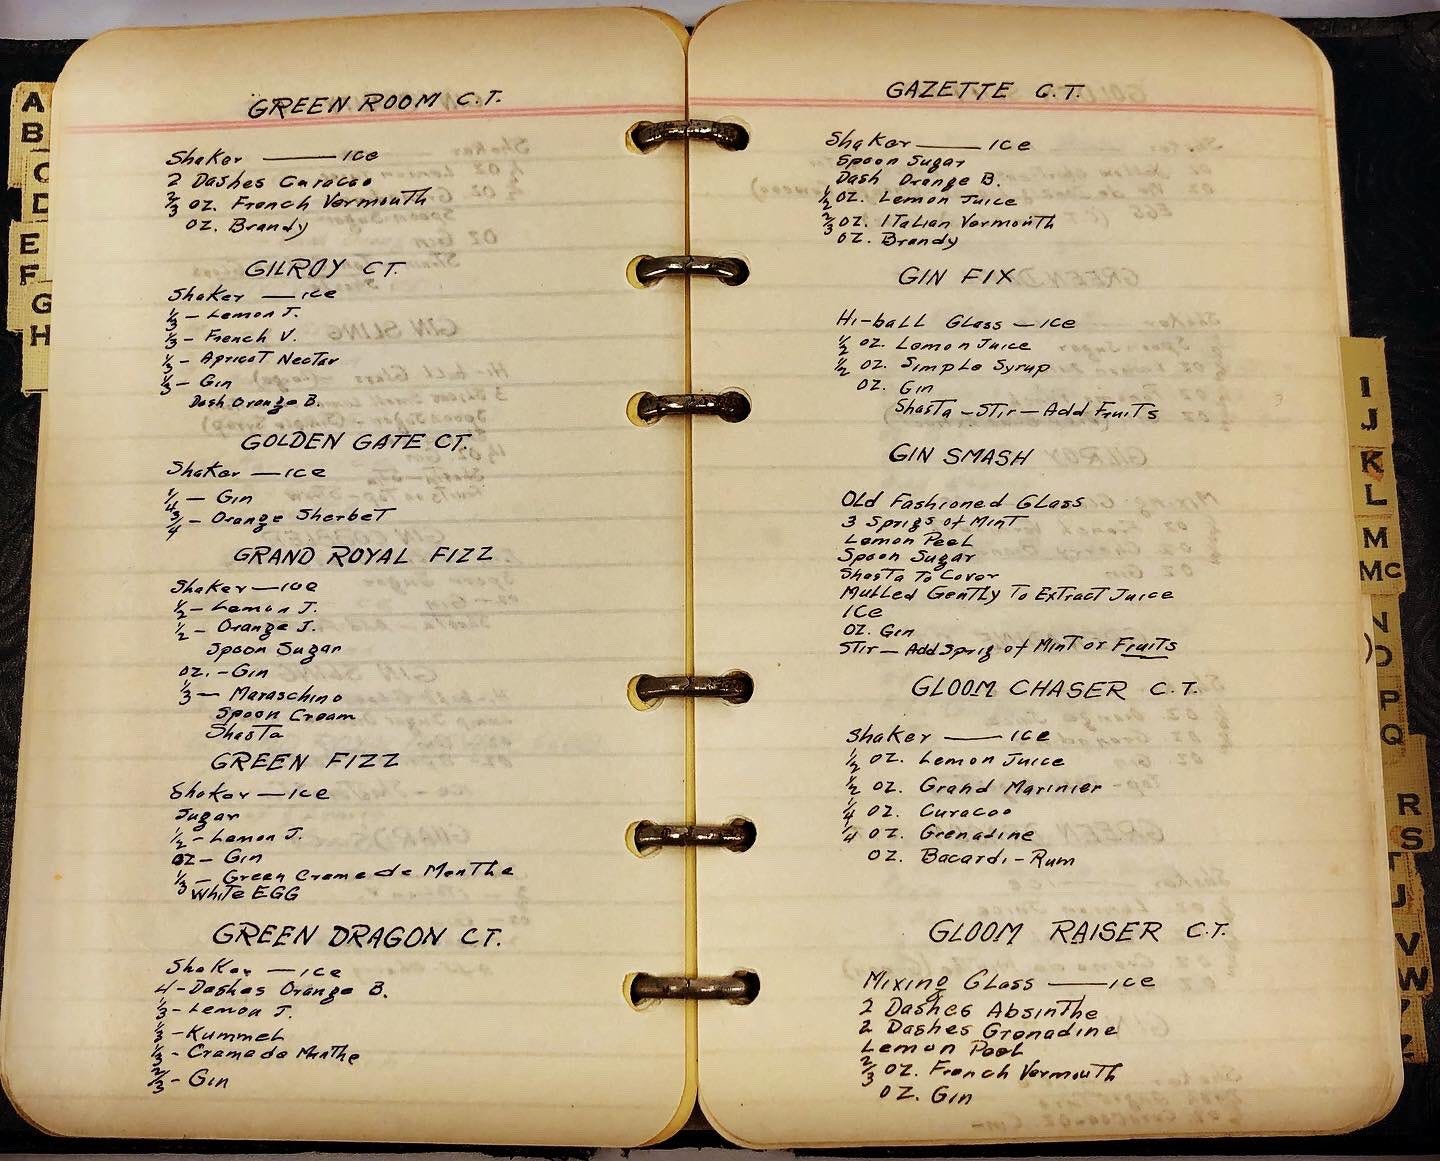 A
B
C
D
E
F
G
H
GREEN ROOM C.T.
Shaker — ice
2 Dashes Curacao
2/3 oz. French Vermouth
oz. Brandy
GILROY CT.
Shaker — ice
1/3 - Lemon J.
1/3 - French V.
1/3 - Apricot Nectar
1/3 - Gin
Dash Orange B.
GOLDEN GATE CT.
Shaker — ice
1/4 - Gin
3/4 - Orange Sherbet
GRAND ROYAL FIZZ
Shaker — ice
1/2 - Lemon J.
1/2 - Orange J.
Spoon Sugar
oz. - Gin
1/3 - Maraschino
Spoon Cream
Shasta
GREEN FIZZ
Shaker — ice
Sugar
1/2 - Lemon J.
oz - Gin
1/3 - Green Creme de Menthe
White EGG
GREEN DRAGON CT.
Shaker — ice
4 - Dashes Orange B.
1/3 - Lemon J.
1/3 - Kummel
1/3 - Creme de Menthe
2/3 - Gin
GAZETTE C.T.
Shaker — ice
Spoon Sugar
Dash Orange B.
1/2 oz. Lemon Juice
2/3 oz. Italian Vermouth
oz. Brandy
GIN FIX
Hi-ball Glass — ice
1/2 oz. Lemon Juice
1/2 oz. Simple Syrup
oz. Gin
Shasta - Stir - Add Fruits
GIN SMASH
Old Fashioned Glass
3 Sprigs of Mint
Lemon Peel
Spoon Sugar
Shasta To Cover
Mulled Gently To Extract Juice
Ice
oz. Gin
Stir - Add Sprig of Mint or Fruits
GLOOM CHASER C.T.
Shaker — ice
1/2 oz. Lemon Juice
1/2 oz. Grand Marinier
1/4 oz. Curacoo
1/4 oz. Grenadine
oz. Bacardi - Rum
GLOOM RAISER C.T.
Mixing Glass — ice
2 Dashes Absinthe
2 Dashes Grenadine
Lemon Peel
2/3 oz. French Vermouth
oz. Gin
I
J
K
L
M
Mc
N
O
P
Q
R
S
T
U
V
W